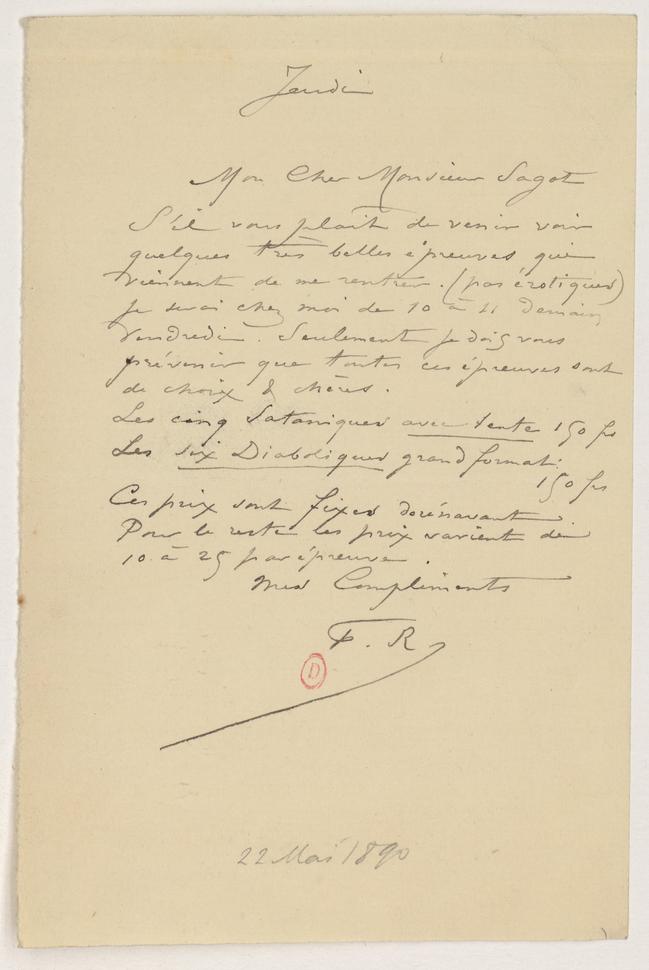 Jeudi
Mon Cher Monsieur Sagot
S'il vous plaît de venir voir
quelques très belles épreuves qui
viennent de me rentrer. (pas érotiques)
je serai chez moi de 10 à 11 demain
Vendredi. Seulement je dois vous
prévenir que toutes ces épreuves sont
de choix & chères.
Les cinq Sataniques avec texte 150 frs
Les six Diaboliques grand format.
150 frs
Ces prix sont fixes dorénavant.
Pour le reste les prix varient de
10 à 25 par épreuve.
Mes Compliments
F. R
D
22 Mai 1890